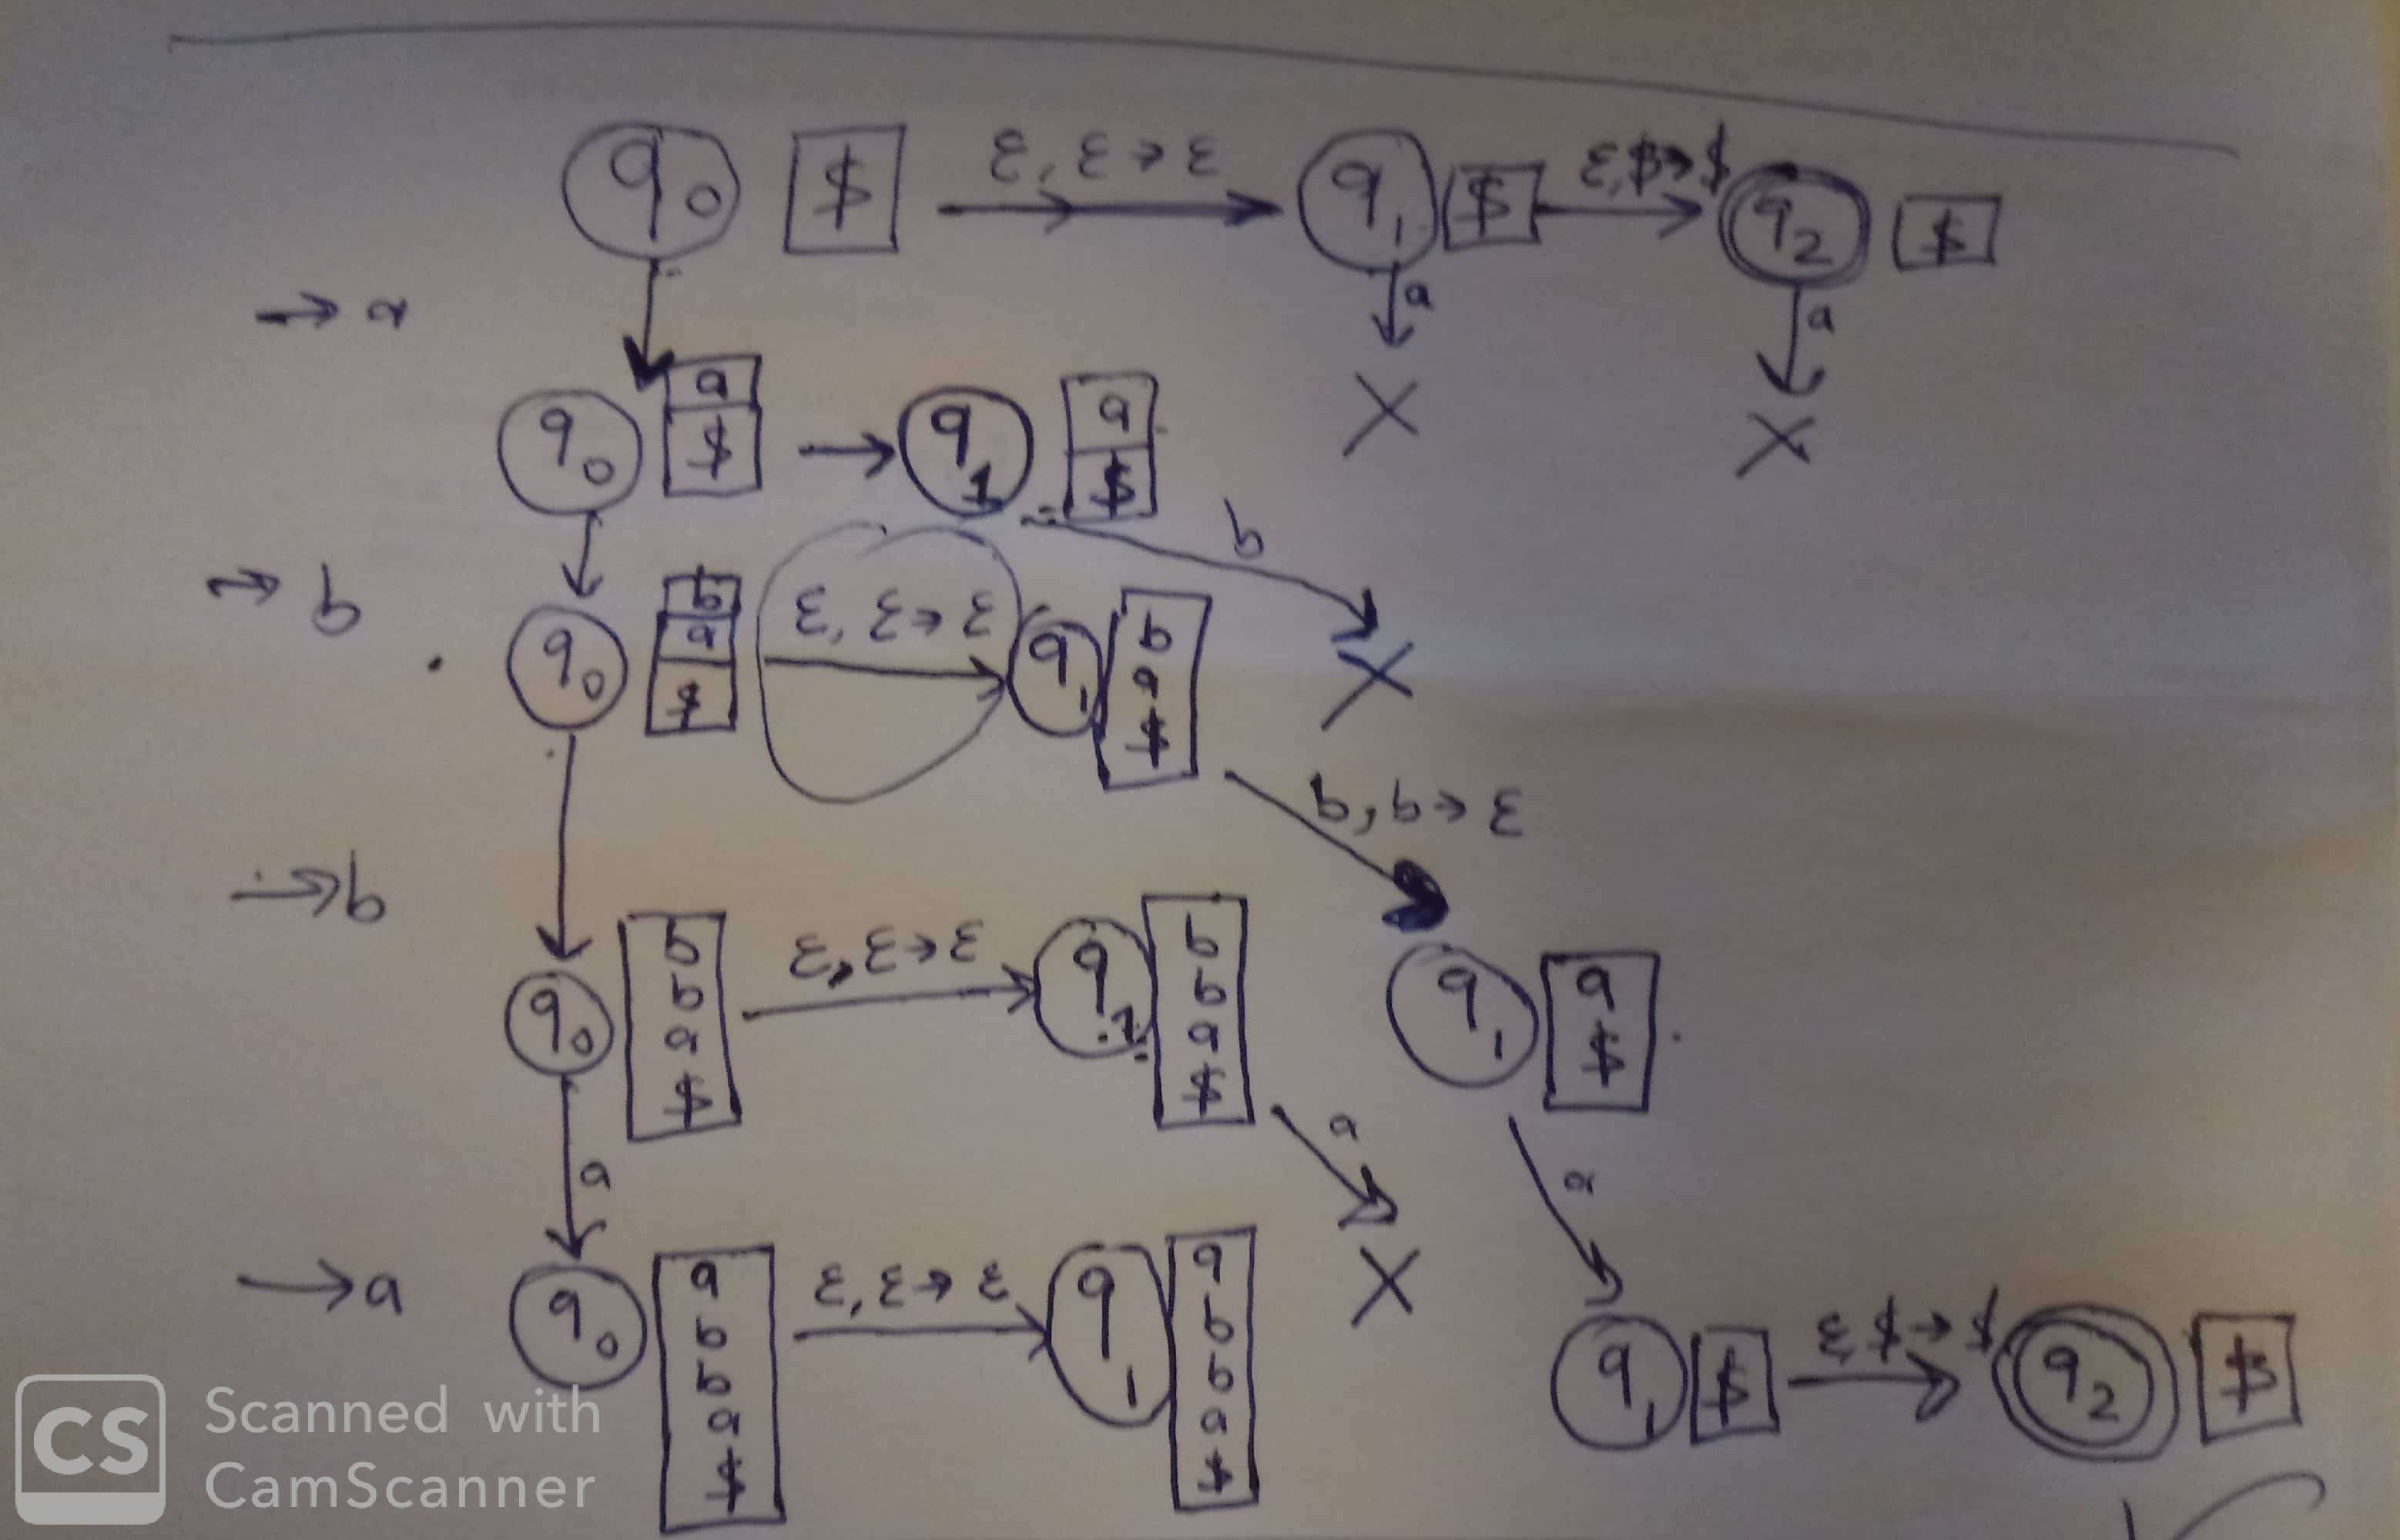 q0 $ ε, ε→ε q1 $ ε,$→$ q2 $
→a a a
q0 a $ → q1 a $
b
→b q0 b a $ ε, ε→ε q1 b a $
b, b→ε
→b q0 b b a $ ε, ε→ε q1 b b a $ q1 a $
a a a
→a q0 a b b a $ ε, ε→ε q1 a b b a $ q1 $ ε $→$ q2 $
CS Scanned with
CamScanner